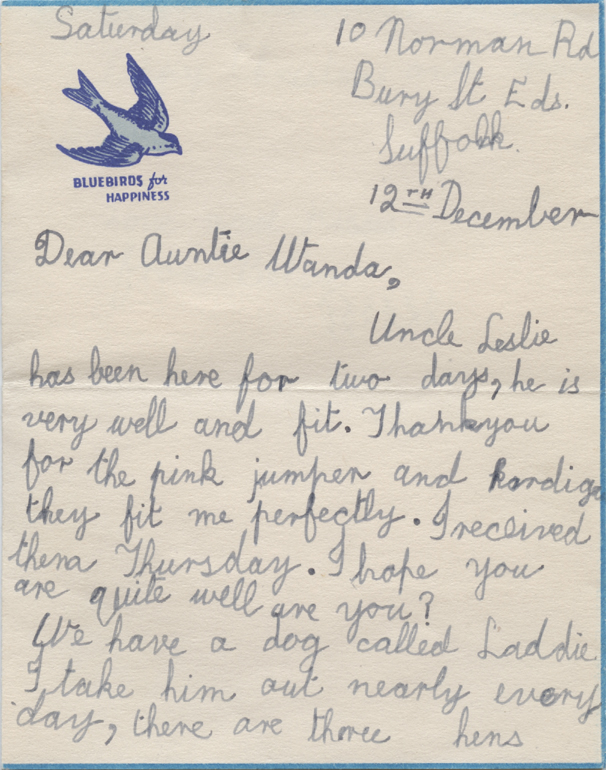 Saturday
10 Norman Rd
Bury St Eds.
Suffolk.
12TH December
BLUEBIRDS for
HAPPINESS
Dear Auntie Wanda,
Uncle Leslie
has been here for two days, he is
very well and fit. Thankyou
for the pink jumper and kardiga
they fit me perfectly. I received
them Thursday. I hope you
are quite well are you?
We have a dog called Laddie
I take him out nearly every
day, there are three hens